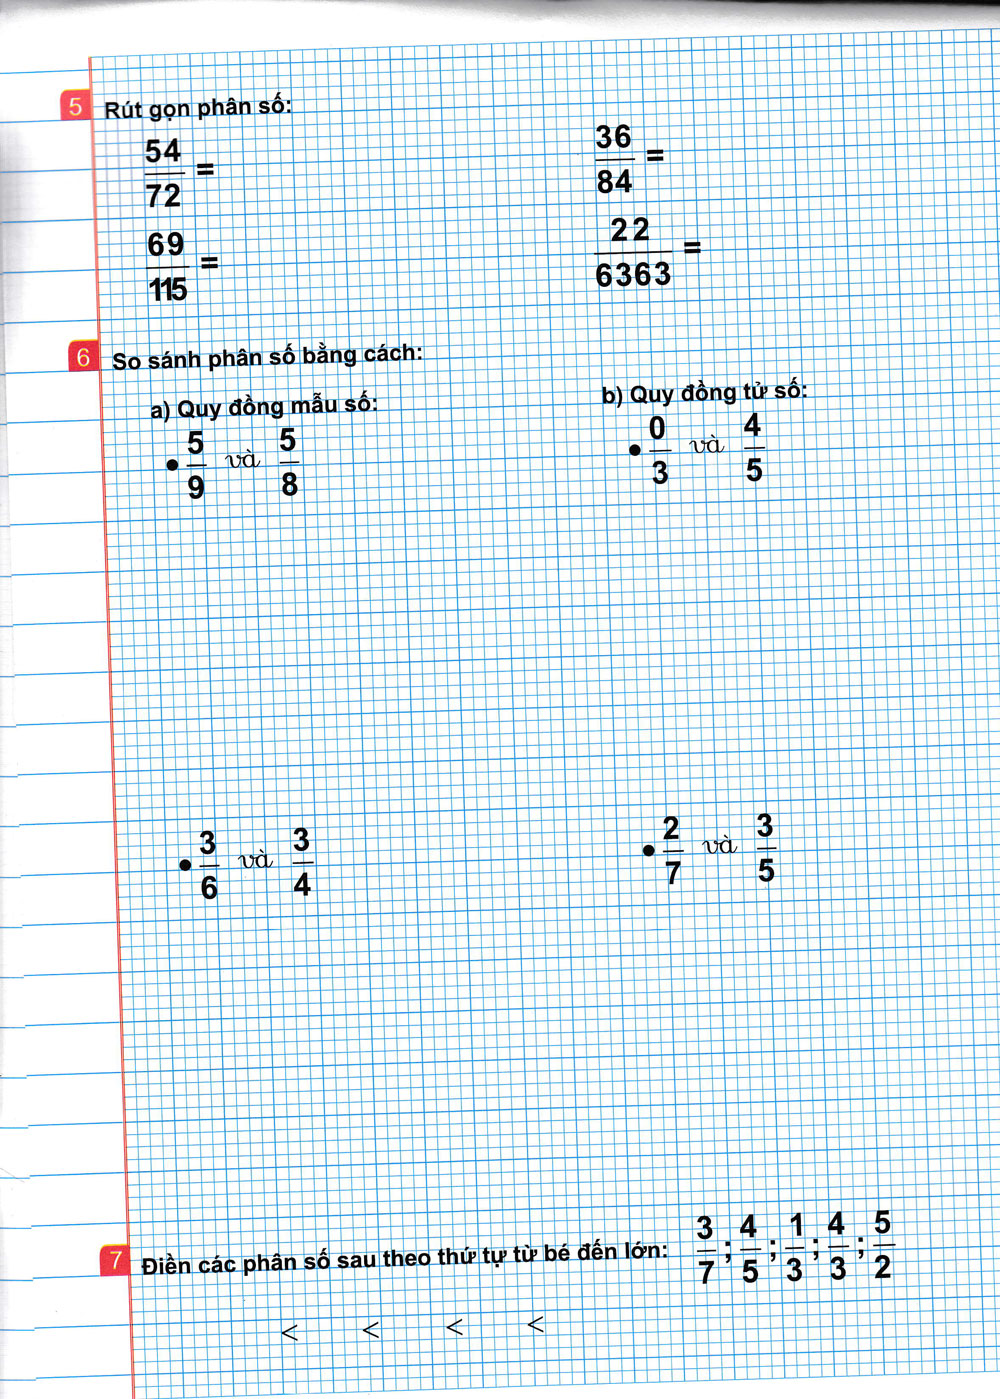 5 Rút gọn phân số:
54/72 = 36/84 =
69/115 = 22/6363 =
6 So sánh phân số bằng cách:
a) Quy đồng mẫu số: b) Quy đồng tử số:
• 5/9 và 5/8 • 0/3 và 4/5
• 3/6 và 3/4 • 2/7 và 3/5
7 Điền các phân số sau theo thứ tự từ bé đến lớn: 3/7 ; 4/5 ; 1/3 ; 4/3 ; 5/2
< < < <